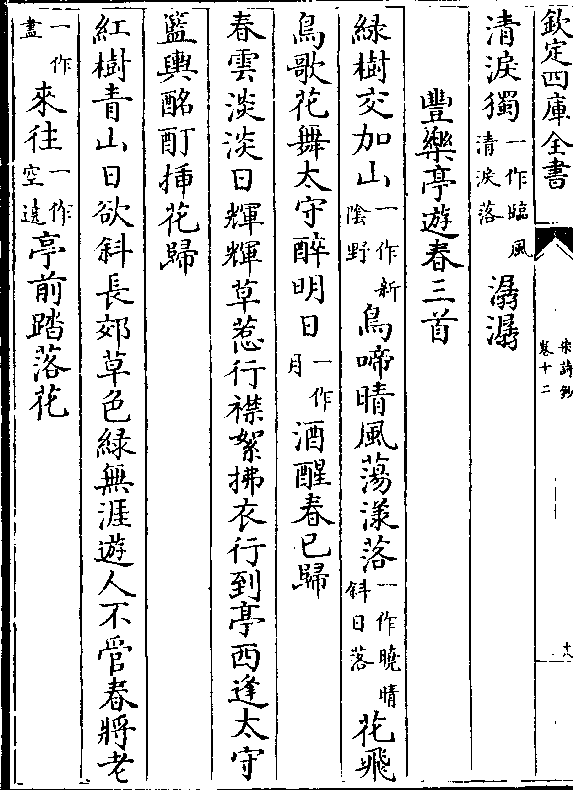 欽定四庫全書
宋詩鈔
卷十二
十八
清淚獨一作臨風清淚落潺潺
豐樂亭遊春三首
綠樹交加山一作新陰野鳥啼晴風蕩漾落一作曉晴斜日落花飛
鳥歌花舞太守醉明日一作月酒醒春已歸
春雲淡淡日輝輝草惹行襟絮拂衣行到亭西逢太守
籃輿酩酊揷花歸
紅樹青山日欲斜長郊草色綠無涯遊人不管春將老
一作盡來往一作空遶亭前踏落花